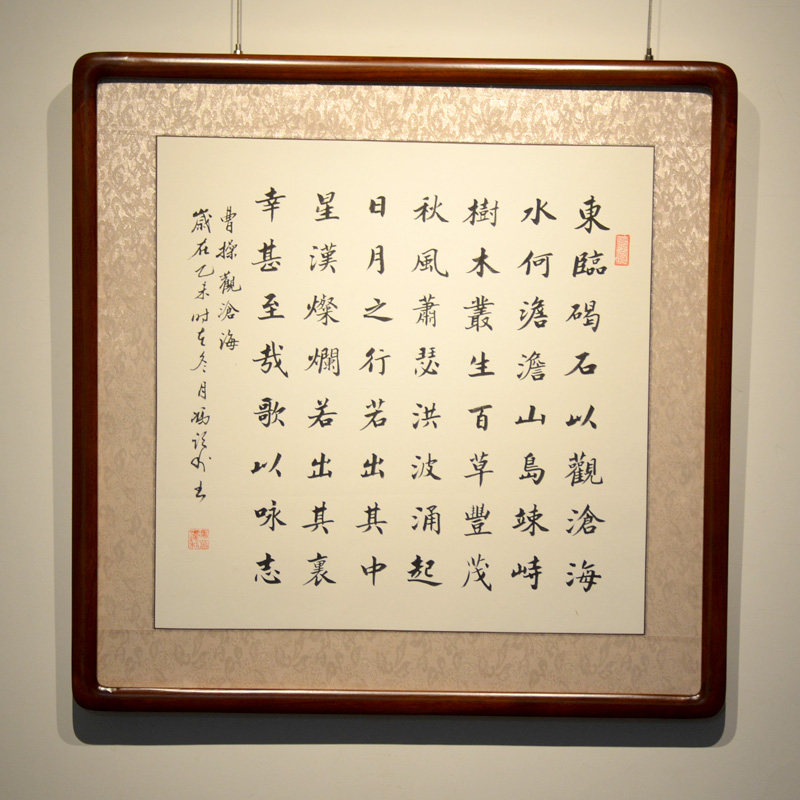 東臨碣石以觀滄海
水何澹澹山島竦峙
樹木叢生百草豐茂
秋風蕭瑟洪波涌起
日月之行若出其中
星漢燦爛若出其裏
幸甚至哉歌以咏志
曹操觀滄海
歲在乙未时在冬月